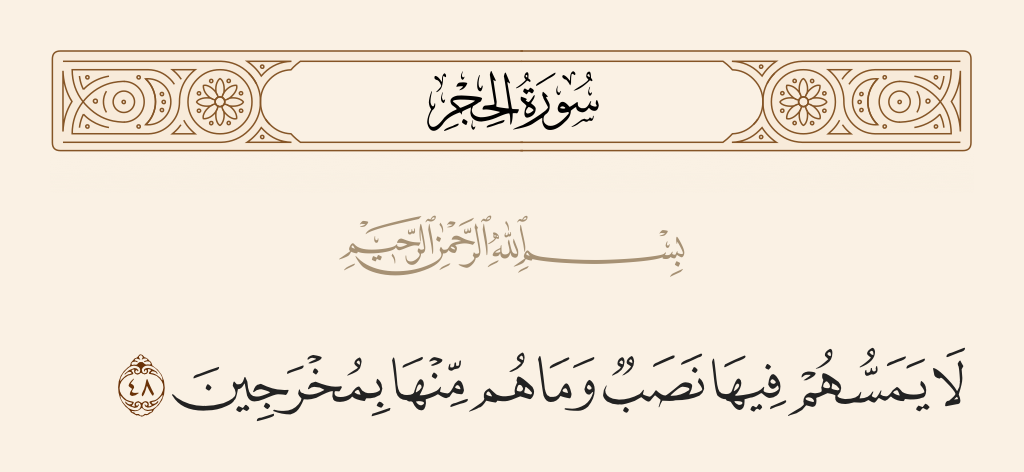 سُورَةُ الحِجْرِ
بِسْمِ ٱللَّهِ ٱلرَّحْمَٰنِ ٱلرَّحِيمِ
لَا يَمَسُّهُمْ فِيهَا نَصَبٌ وَمَا هُم مِّنْهَا بِمُخْرَجِينَ ٤٨